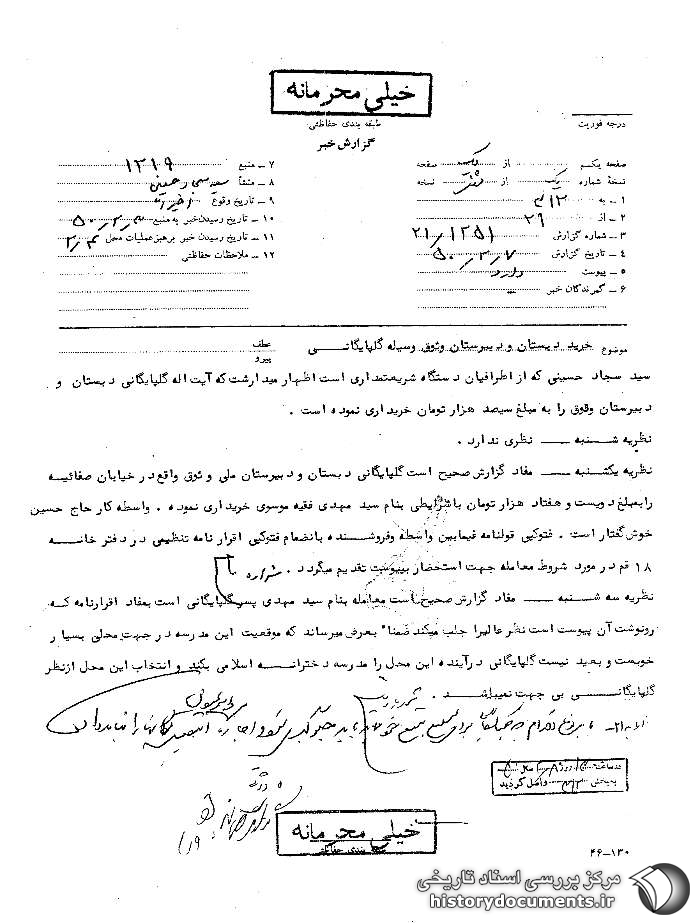 خیلی محرمانه
طبقه بندی حفاظتی
گزارش خبر
درجه فوریت
صفحه یکم از یک صفحه
نسخه شماره یک از نسخه
۱ ـ به ۳۱۲
۲ ـ از ۲۱
۳ ـ شماره گزارش ۲۱/۱۲۵۱
۴ ـ تاریخ گزارش ۵۰/۳/۷
۵ ـ پیوست دارد
۶ ـ گیرندگان خبر
۷ ـ منبع ۱۳۱۹
۸ ـ منشأ سید سجاد حسینی
۹ ـ تاریخ وقوع اخیرا
۱۰ ـ تاریخ رسیدن خبر به منبع
۱۱ ـ تاریخ رسیدن خبر برهبر عملیات محل
۱۲ ـ ملاحظات حفاظتی
موضوع خرید دبستان و دبیرستان وثوق وسیله گلپایگانی
عطف
پیرو
سید سجاد حسینی که از اطرافیان دستگاه شریعتمداری است اظهار میدارشت که آیت اله گلپایگانی دبستان و
دبیرستان وقوق را به مبلغ سیصد هزار تومان خریداری نموده است .
نظریه شنبه ــ نظری ندارد .
نظریه یکشنبه ــ مفاد گزارش صحیح است گلپایگانی دبستان و دبیرستان ملی وثوق واقع در خیابان صفائیه
را بمبلغ دویست و هفتاد هزار تومان با شرایطی بنام سید مهدی فقیه موسوی خریداری نموده . واسطه کار حاج حسین
خوش گفتار است . فتوکپی قولنامه فیمابین واسطه وفروشنده بانضمام فتوکپی اقرار نامه تنظیمی در دفتر خانه
۱۸ قم در مورد شروط معامله جهت استحضار بپیوست تقدیم میگردد .
نظریه سه شنبه ــ مفاد گزارش صحیح است معامله بنام سید مهدی پسر گلپایگانی است بمفاد اقرارنامه که
رونوشت آن پیوست است نظر عالیرا جلب میکند ضمنا" بعرض میرساند که موقعیت این مدرسه در جهت محلی بسیار
خوبست و بعید نیست گلپایگانی در آینده این محل را مدرسه دخترانه اسلامی بکند و انتخاب این محل از نظر
گلپایگانی بی جهت نمیباشد .
خیلی محرمانه
طبقه بندی حفاظتی
۴۶-۱۳۰
مرکز بررسی اسناد تاریخی
historydocuments.ir